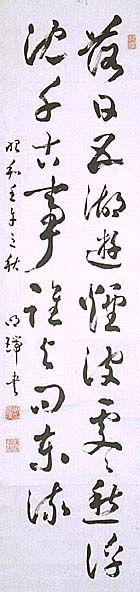 落日五湖遊煙波處々愁浮
沈千古事誰与問東流
昭和壬午之秋
輝書